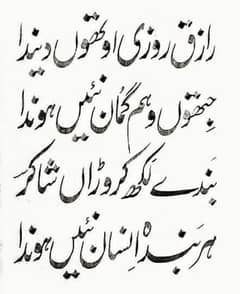 رازق روزی اوتھوں دیندا
جِتھوں وہم گُمان نئیں ہوندا
بَندے لکھ کروڑاں شاکرؔ
ہر بَندہ اِنسان نئیں ہوندا